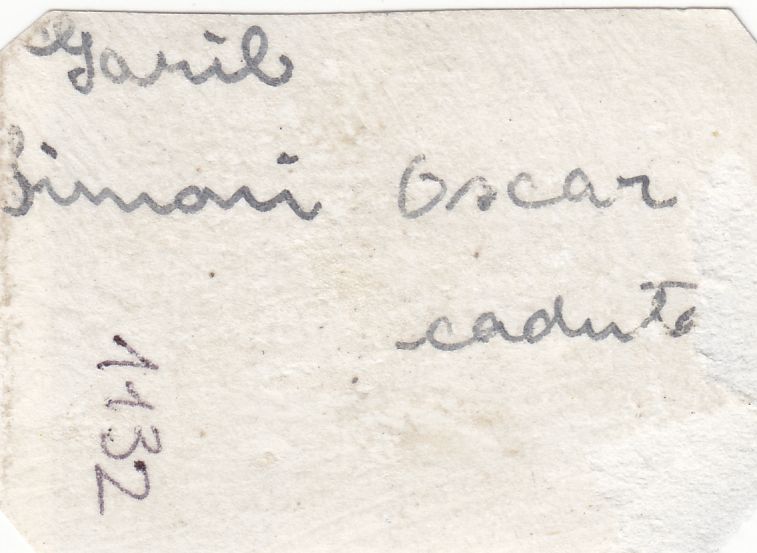 Garib
Simoni Oscar
caduto
1132